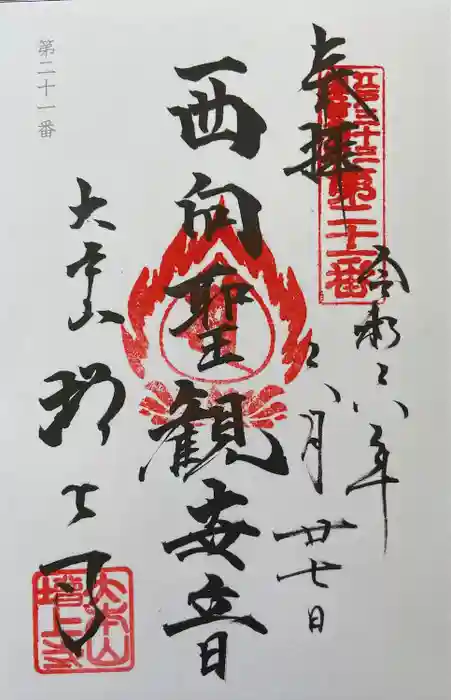 第二十一番
奉拝
第二十一番
令和六年
六月廿七日
西向聖観世音
大本山
増上寺
大本山
増上寺